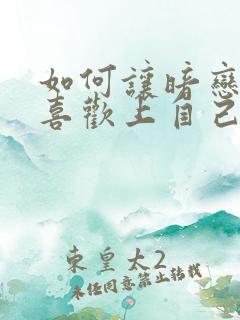 如何讓暗戀
喜歡上自己
東皇太2
未经同意禁止转载